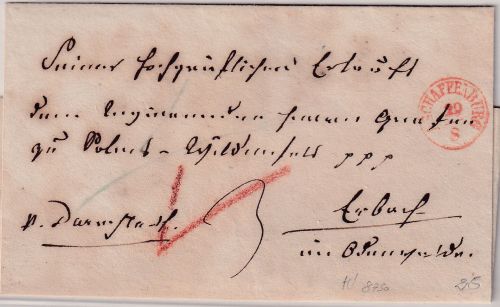 Seiner Hochgräflichen Erlaucht
dem Regierenden Herrn Grafen
zu Solms-Wildenfels ppp
p. Darmstadt.
Erbach
im Odenwalde.
3
ASCHAFFENBURG
29
8
8750
25